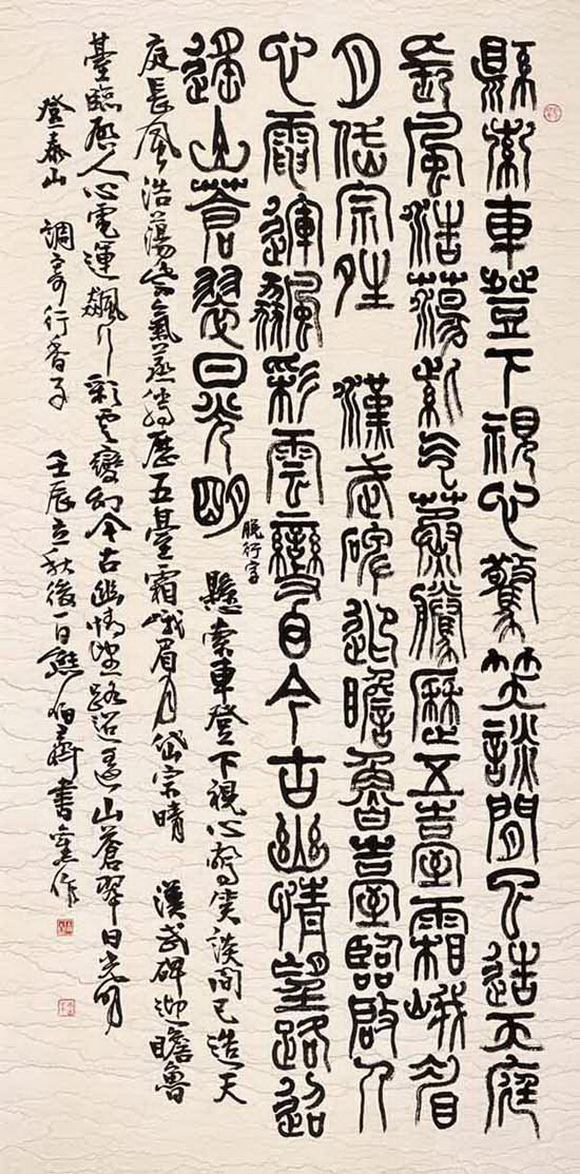 縣索車登下視心驚笑談間已造天庭
長風浩蕩紫氣蒸騰歷五臺霜峨眉
月岱宗晴 漢武碑迎瞻魯臺臨啟人
心電運飆彩雲變幻今古幽情望路迢
遙山蒼翠日光明
脫行字
懸索車登下視心驚笑談間已造天
庭長風浩蕩紫氣蒸騰歷五臺霜峨眉月岱宗晴 漢武碑迎瞻魯
臺臨啟人心電運飆行彩雲變幻今古幽情望路迢遙山蒼翠日光明
登泰山 調寄行香子 壬辰立秋後一日熊伯齊書舊作